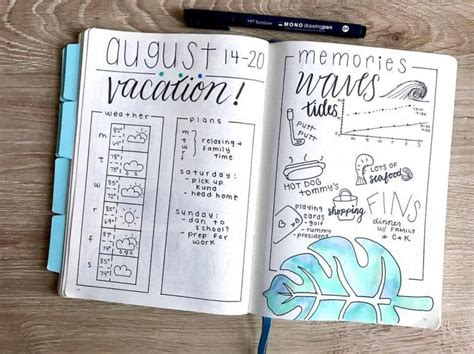 Tombow MONO drawing pen
august 14-20
vacation!
weather
plans
m
t
w
r
f
s
85°
m
t
w
r
f
relaxing +
family
time
saturday:
- pick up
kuna
- head home
sunday:
- dan to
school?
- prep for
work
memories
waves
tides
putt-
putt
HOT DOG
tommy's
LOTS OF
seafood
playing
cards
- golf
- rummy
president
shopping
FINS
dinner
w/ FAMILY
& C+K